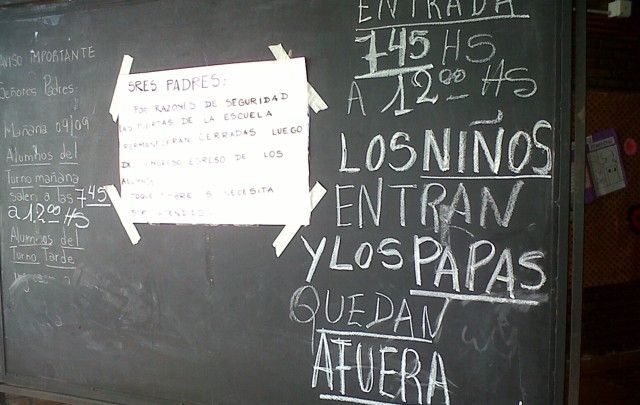 AVISO IMPORTANTE
Señores Padres:
Mañana 09/09
Alumnos del
Turno mañana
salen a las 745
a 1200 HS
Alumnos del
Turno Tarde
SRES PADRES:
POR RAZONES DE SEGURIDAD
LAS PUERTAS DE LA ESCUELA
PERMANECERAN CERRADAS LUEGO
DE INGRESO EGRESO DE LOS
TOQUE TIMBRE SI NECESITA
SER ATENDIDO
ENTRADA
745 HS
A 1200 HS
LOS NIÑOS
ENTRAN
Y LOS PAPAS
QUEDAN
AFUERA